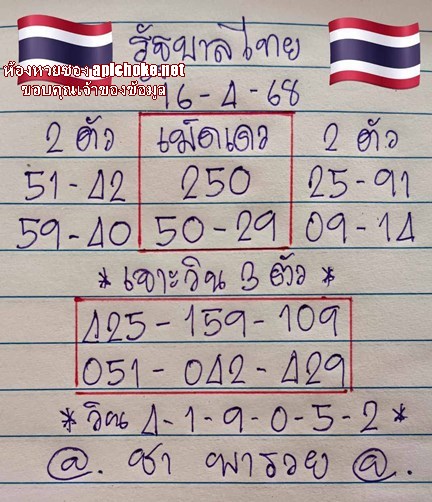 รัฐบาลไทย
ห้องหวยซอง aplchoke.net
ขอบคุณเจ้าของข้อมูล
16-4-68
2 ตัว เม็ดเดว 2 ตัว
51-42 250 25-91
59-40 50-29 09-14
* เจาะวิน 3 ตัว *
425-159-109
051-042-429
* วิน 4-1-9-0-5-2 *
@. ชา พารวย @.